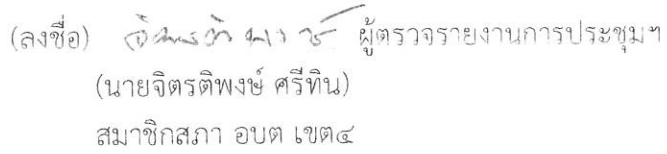 (ลงชื่อ) จิตรติพงษ์ ผู้ตรวจรายงานการประชุมฯ
(นายจิตรติพงษ์ ศรีทิน)
สมาชิกสภา อบต เขต๔